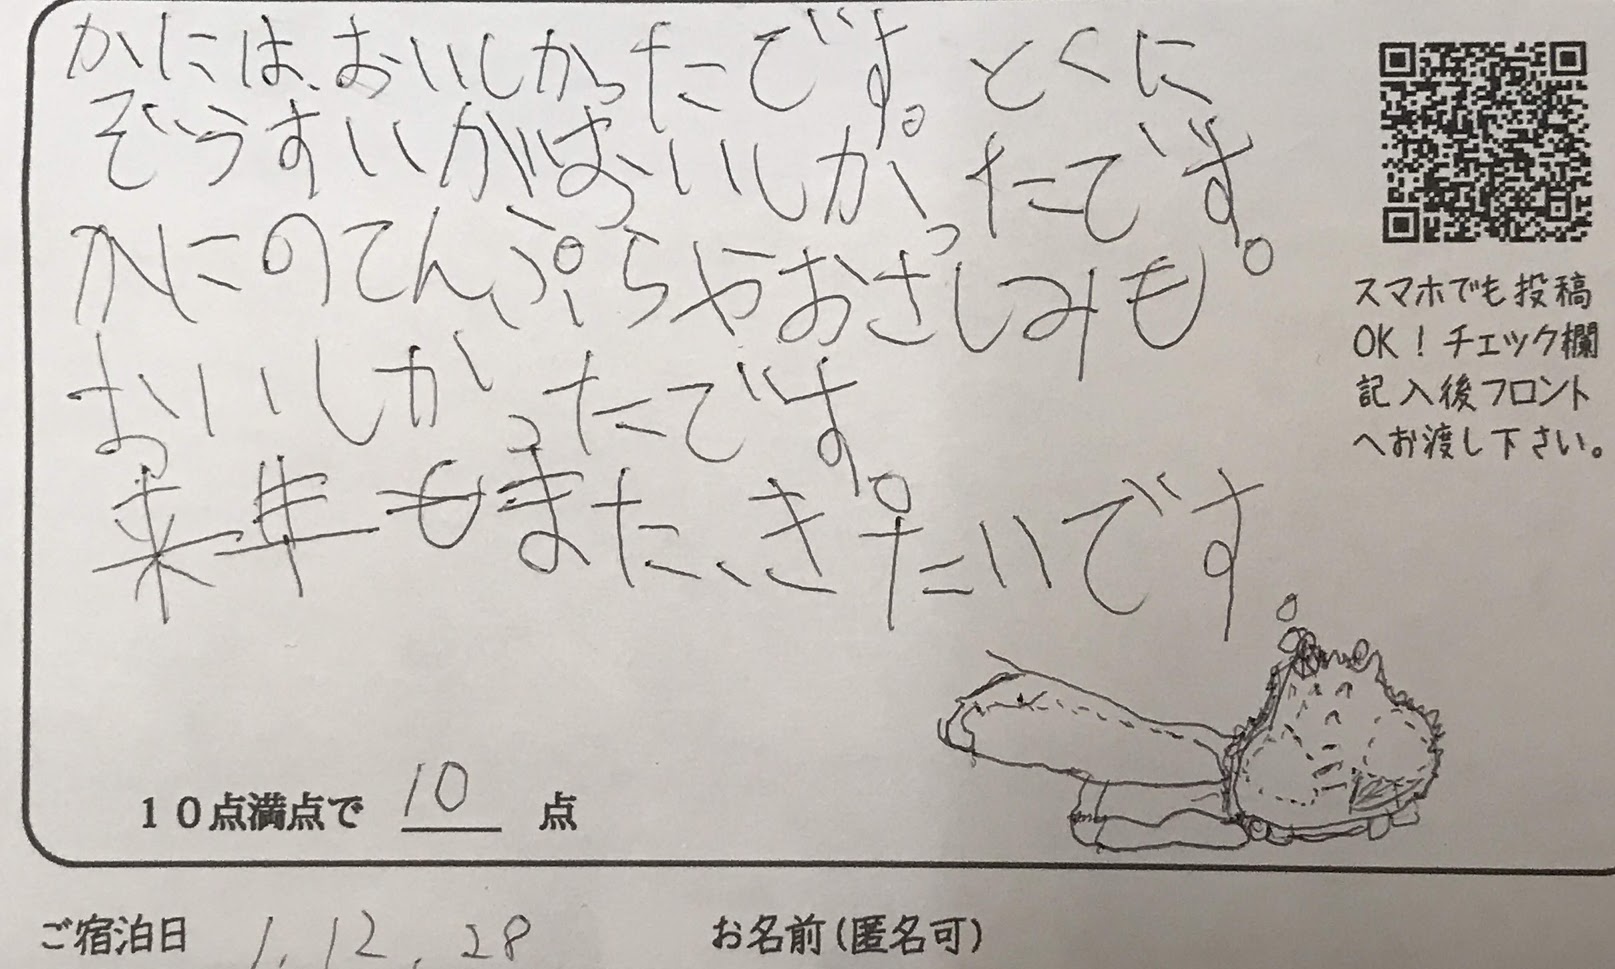 かには、おいしかったです。とくに
ぞうすいがおいしかったです。
かにのてんぷらやおさしみも
おいしかったです。
来年もまた、きたいです。
スマホでも投稿
OK！チェック欄
記入後フロント
へお渡し下さい。
10点満点で 10 点
ご宿泊日 1.12.28 お名前(匿名可)